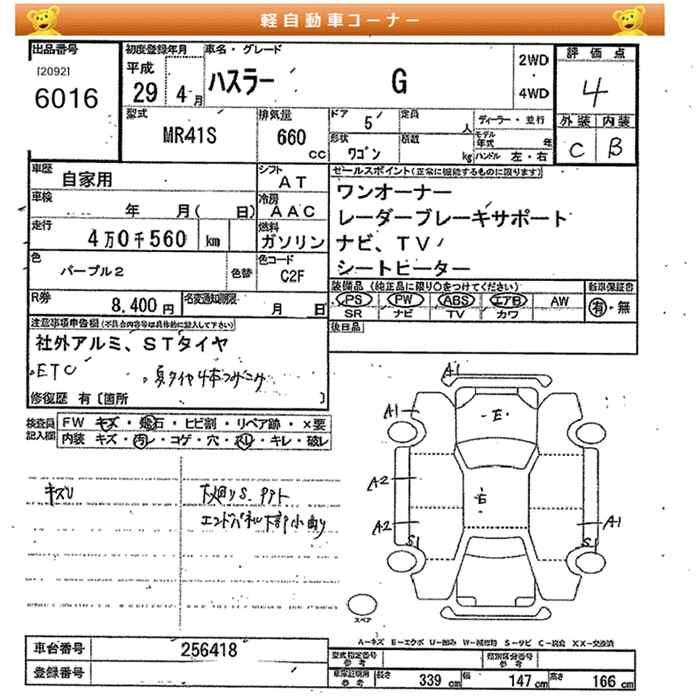 軽自動車コーナー
出品番号
[2092]
6016
初度登録年月
平成
29 4 月
車名・グレード
ハスラー G
2WD
4WD
評価点
4
外装 内装
C B
型式
MR41S
排気量
660 cc
ドア 5
定員 人
形状 ワゴン
積載 kg
ディーラー・並行
モデル年式 年
ハンドル 左・右
車歴
自家用
シフト
AT
車検
年 月( 日)
冷房
AAC
走行
4万0千560 km
燃料
ガソリン
色
パープル2
色替
色コード
C2F
R券
8,400円
名変通知期限
月 日
セールスポイント(正常に機能するものに限ります)
ワンオーナー
レーダーブレーキサポート
ナビ、TV
シートヒーター
装備品(純正品に限り○をつけてください)
新車保証書
PS PW ABS エアB AW
SR ナビ TV カワ
有・無
後日品
注意事項申告欄(不具合内容等は具体的に記入して下さい)
社外アルミ、STタイヤ
ETC
夏タイヤ4本
修復歴 有〔箇所 〕
検査員記入欄
FW キズ・飛石・ヒビ割・リペア跡・×要
内装 キズ・汚レ・コゲ・穴・キレ・破レ
キズU
エンドパネル下部小曲り
A1
A1
E
A2
E
A2
A1
S1
S1
スペア
A-キズ E-エクボ U-凹み W-補修跡 S-サビ C-腐食 XX-交換済
車台番号
256418
登録番号
型式指定番号
参考
類別区分番号
参考
車庫証明用
参考
長さ 339 cm 幅 147 cm 高さ 166 cm